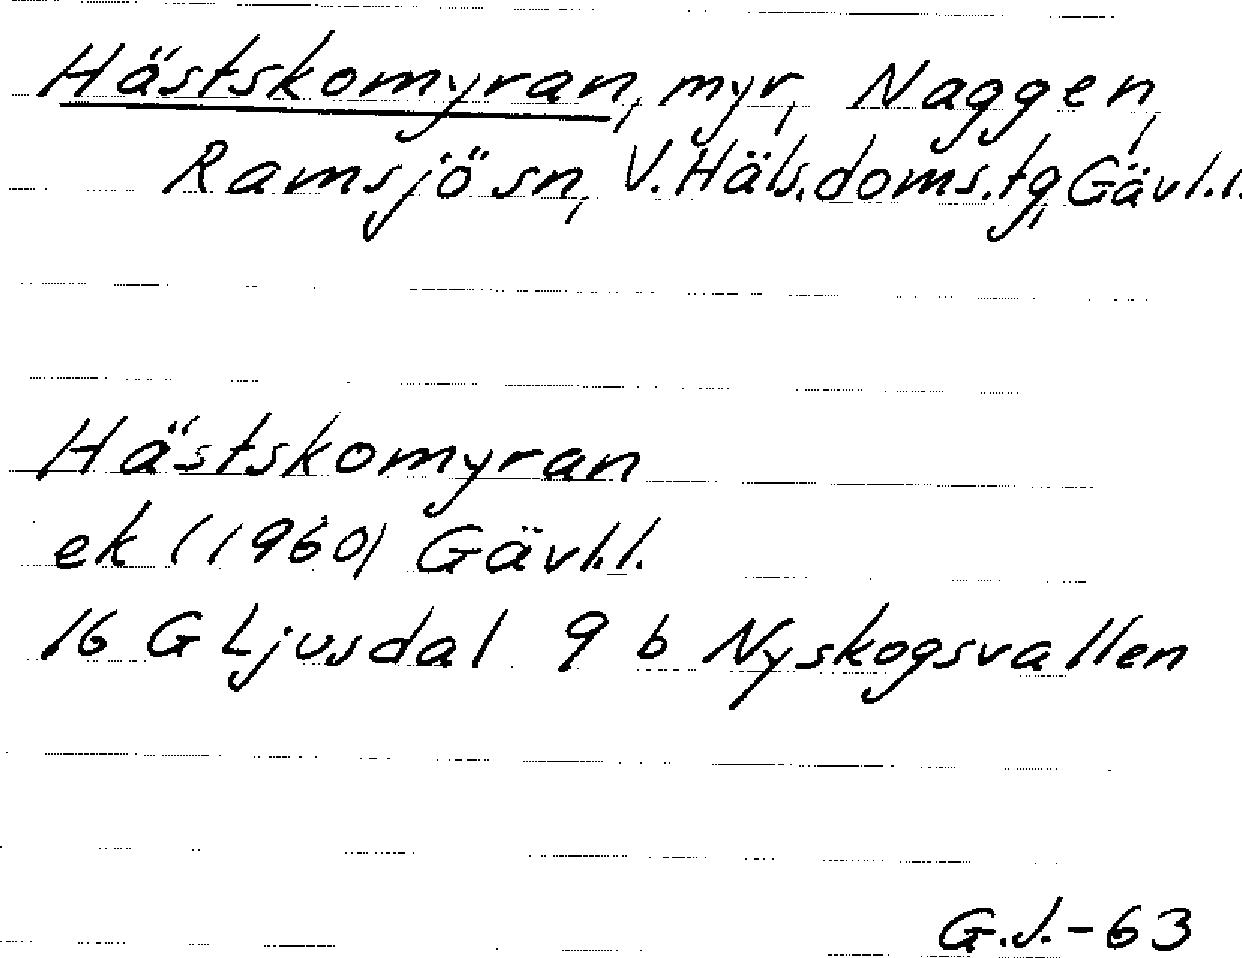 Hästskomyran, myr, Naggen,
Ramsjö sn, V. Häls. doms. tg, Gävl. l.
Hästskomyran
ek (1960) Gävl. l.
16 G Ljusdal 9 b Nyskogsvallen
G.J.-63